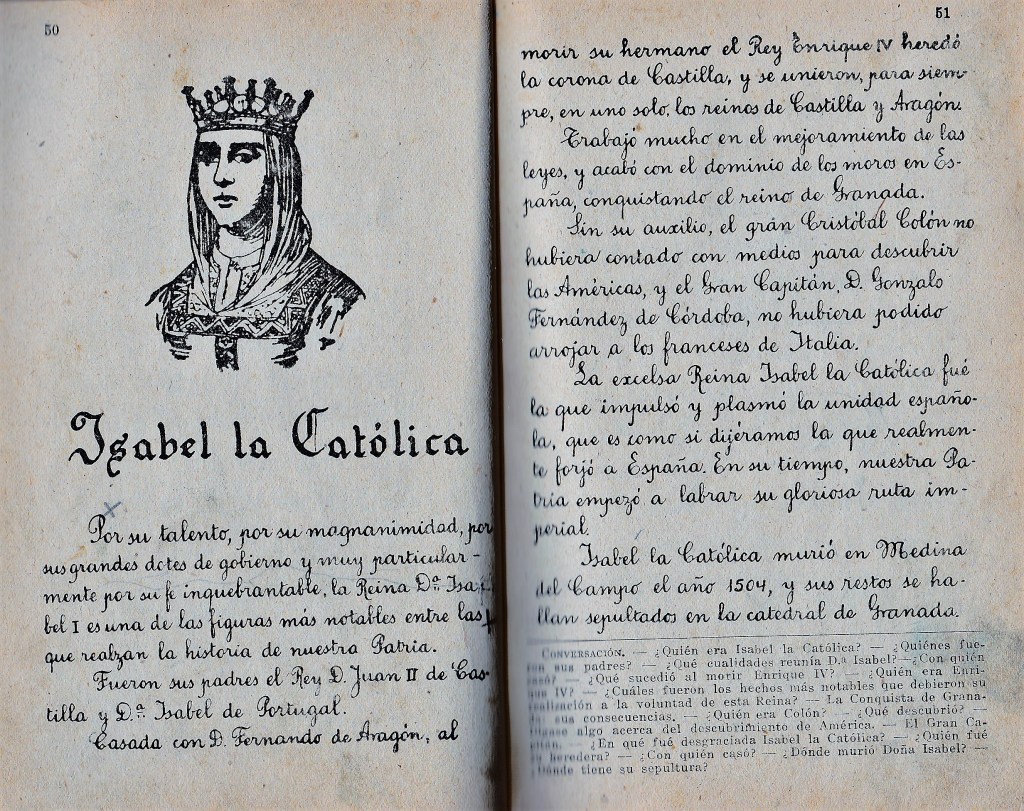 50
Isabel la Católica
Por su talento, por su magnanimidad, por
sus grandes dotes de gobierno y muy particular-
mente por su fe inquebrantable, la Reina D.ª Isa-
bel I es una de las figuras más notables entre las
que realzan la historia de nuestra Patria.
Fueron sus padres el Rey D. Juan II de Cas-
tilla y D.ª Isabel de Portugal.
Casada con D. Fernando de Aragón, al
51
morir su hermano el Rey Enrique IV heredó
la corona de Castilla, y se unieron, para siem-
pre, en uno solo, los reinos de Castilla y Aragón.
Trabajó mucho en el mejoramiento de las
leyes, y acabó con el dominio de los moros en Es-
paña, conquistando el reino de Granada.
Sin su auxilio, el gran Cristóbal Colón no
hubiera contado con medios para descubrir
las Américas, y el Gran Capitán, D. Gonzalo
Fernández de Córdoba, no hubiera podido
arrojar a los franceses de Italia.
La excelsa Reina Isabel la Católica fué
la que impulsó y plasmó la unidad españo-
la, que es como si dijéramos la que realmen-
te forjó a España. En su tiempo, nuestra Pa-
tria empezó a labrar su gloriosa ruta im-
perial.
Isabel la Católica murió en Medina
del Campo el año 1504, y sus restos se ha-
llan sepultados en la catedral de Granada.
CONVERSACIÓN. — ¿Quién era Isabel la Católica? — ¿Quiénes fue-
ron sus padres? — ¿Qué cualidades reunía D.ª Isabel? — ¿Con quién
casó? — ¿Qué sucedió al morir Enrique IV? — ¿Quién era Enri-
que IV? — ¿Cuáles fueron los hechos más notables que debieron su
realización a la voluntad de esta Reina? — La Conquista de Grana-
da: sus consecuencias. — ¿Quién era Colón? — ¿Qué descubrió? —
algo acerca del descubrimiento de América. — El Gran Ca-
pitán. — ¿En qué fué desgraciada Isabel la Católica? — ¿Quién fué
su heredera? — ¿Con quién casó? — ¿Dónde murió Doña Isabel? —
¿Dónde tiene su sepultura?